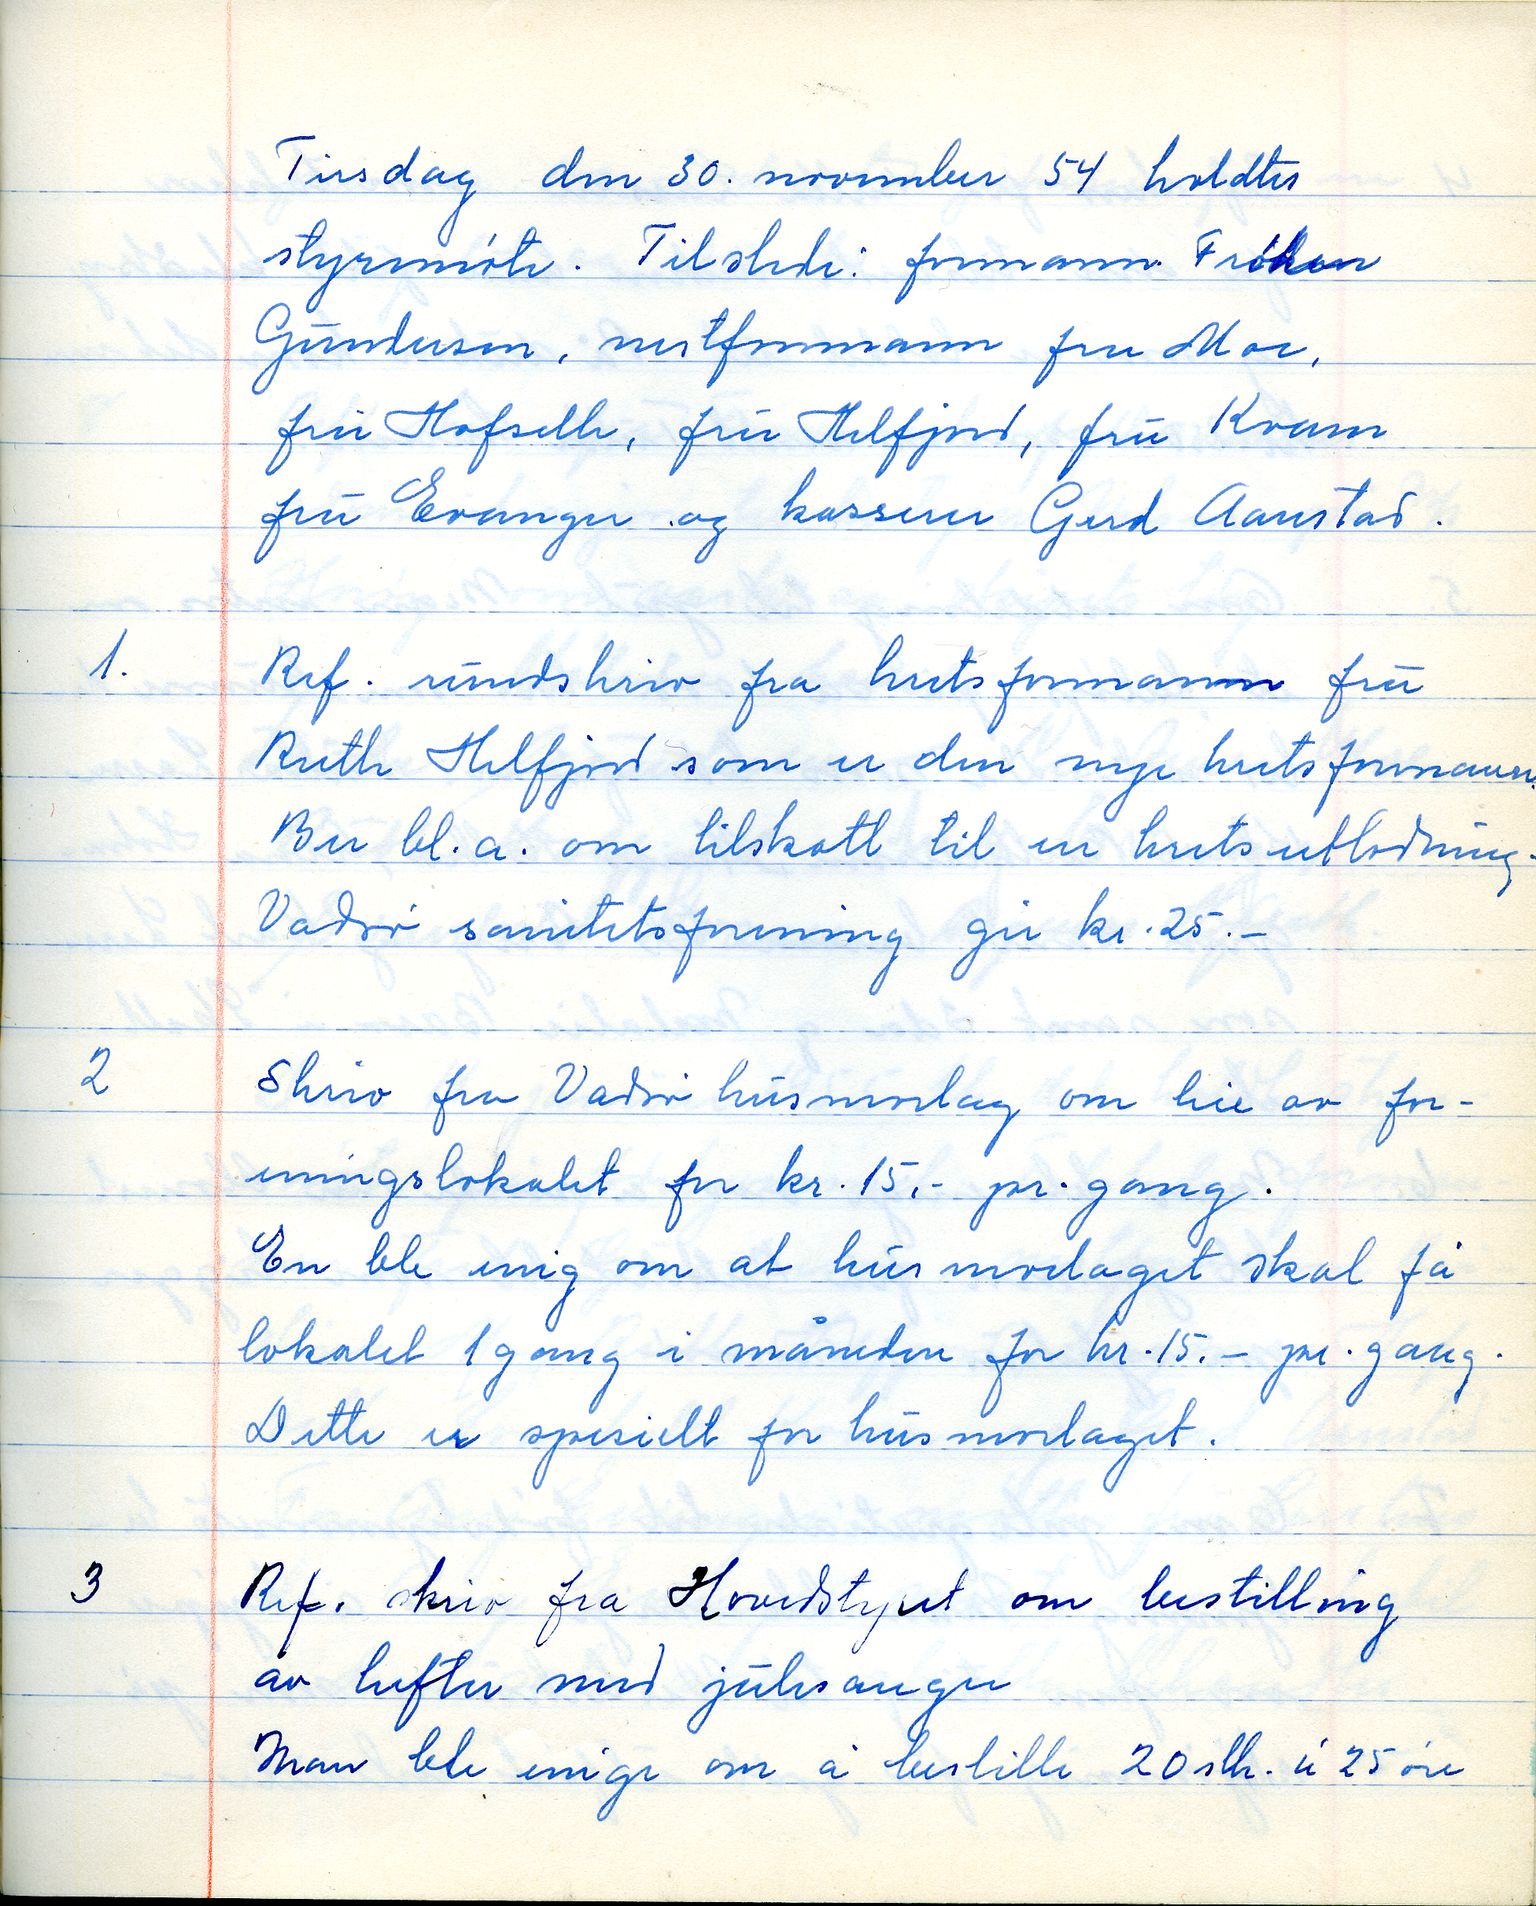 Tirsdag den 30. november 54 holdtes
styremöte. Tilstede: formann. Fröken
Gundersen, nestformann fru Moe,
fru Hofseth, fru Helfjord, fru Kvam
fru Evanger og kasserer Gerd Aarstad.
1. Ref. rundskriv fra kretsformann fru
Ruth Helfjord som er den nye kretsformann.
Ber bl.a. om tilskott til en kretsutlodning.
Vadsö sanitetsforening gir kr. 25.-
2 Skriv fra Vadsö husmorlag om leie av for-
eningslokalet for kr. 15.- pr. gang.
En ble enig om at husmorlaget skal få
lokalet 1 gang i måneden for kr. 15.- pr. gang.
Dette er spesielt for husmorlaget.
3 Ref. skriv fra Hovedstyret om bestilling
av hefter med julesanger
Man ble enige om å bestille 20 stk. á 25 öre